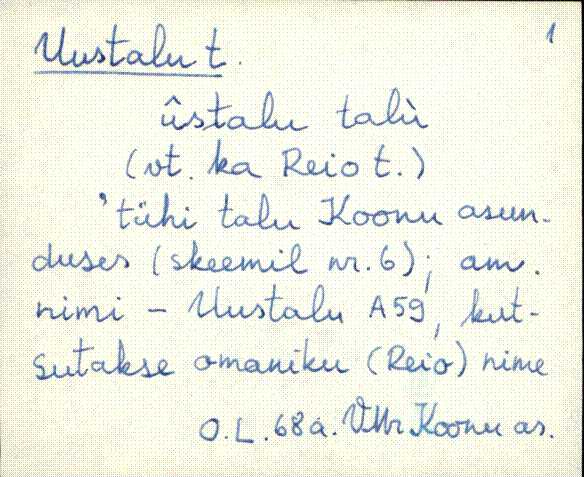 1
Uustalu t.
ûstalu talù
(vt. ka Reio t.)
'tühi talu Koonu asun-
duses (skeemil nr. 6); am.
nimi – Uustalu A59, kut-
sutakse omaniku (Reio) nime
O.L. 68a. VMr Koonu as.